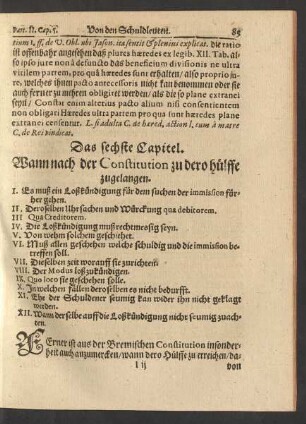 Part. II. Cap. 5. Von den Schuldleuten. 85
tium l. ff. de V. Obl. ubi Jason. ita sensit & plenius explicat. die ratio
ist offenbahr angesehen daß plures hæredes ex legib. XII. Tab. al-
so ipso jure non à defuncto das beneficium divisionis ne ultra
vitilem partem, pro quâ hæredes sunt erhalten / also proprio ju-
re, welches ihnen pacto antecessoris nicht kan benommen oder sie
auch ferner zu nichtem obligiret werden / als die jso plane extranei
seyn / Constat enim alterius pacto alium nisi consentientem
non obligari Hæredes autem ultra quàm pro quâ sunt hæredes plane
extranei censentur. L. si adulta C. de hæred. action l. cum à matre
C. de Rei vindicat.
Das sechste Capitel.
Wann nach der Constitution zu dero hülffe
zugelangen.
I. Es muß ein Loßkündigung für dem suchen der immission für-
her gehen.
II. Deroselben Uhrsachen und Würckung qua debitorem.
III Qua Creditorem.
IV. Die Loßkündigung muß rechtmessig seyn.
V. Von wehm solchem geschiehet.
VI. Muß allen geschehen welche schuldig und die immission be-
treffen soll.
VII. Dieselben zeit worauff sie zurichten
VIII. Der Modus loßzukündigen.
IX. Quo loco sie geschehen solle.
X. Jn welchen fällen deroselben es nicht bedurfft.
XI. Ehe der Schuldener seumig kan wider ihn nicht geklagt
werden.
XII. Wann derselbe auff die Loßkündigung nicht seumig zuach-
ten.
FErner ist aus der Bremischen Constitution insonder-
heit auch anzumercken / wann dero Hülffe zu erreichen / da-
l ij von